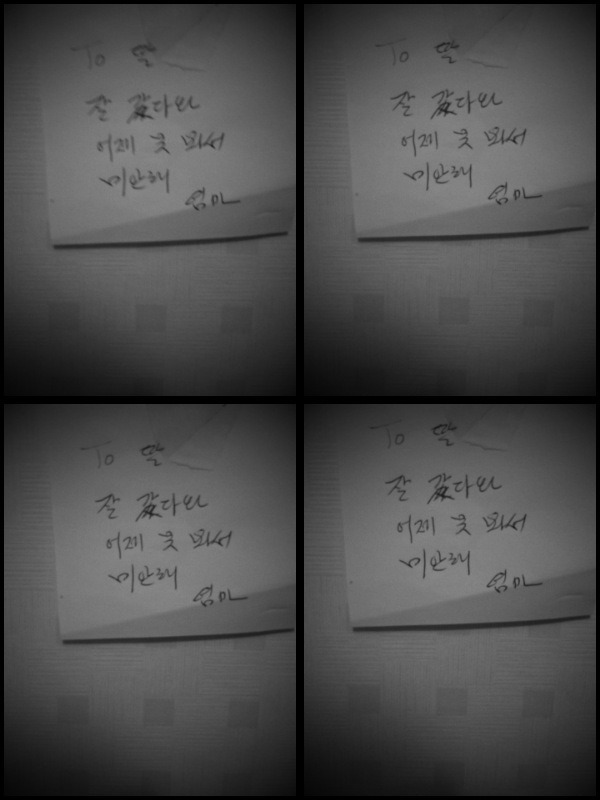 To 딸
잘 갔다와
어제 못 봐서
미안해
엄마
To 딸
잘 갔다와
어제 못 봐서
미안해
엄마
To 딸
잘 갔다와
어제 못 봐서
미안해
엄마
To 딸
잘 갔다와
어제 못 봐서
미안해
엄마